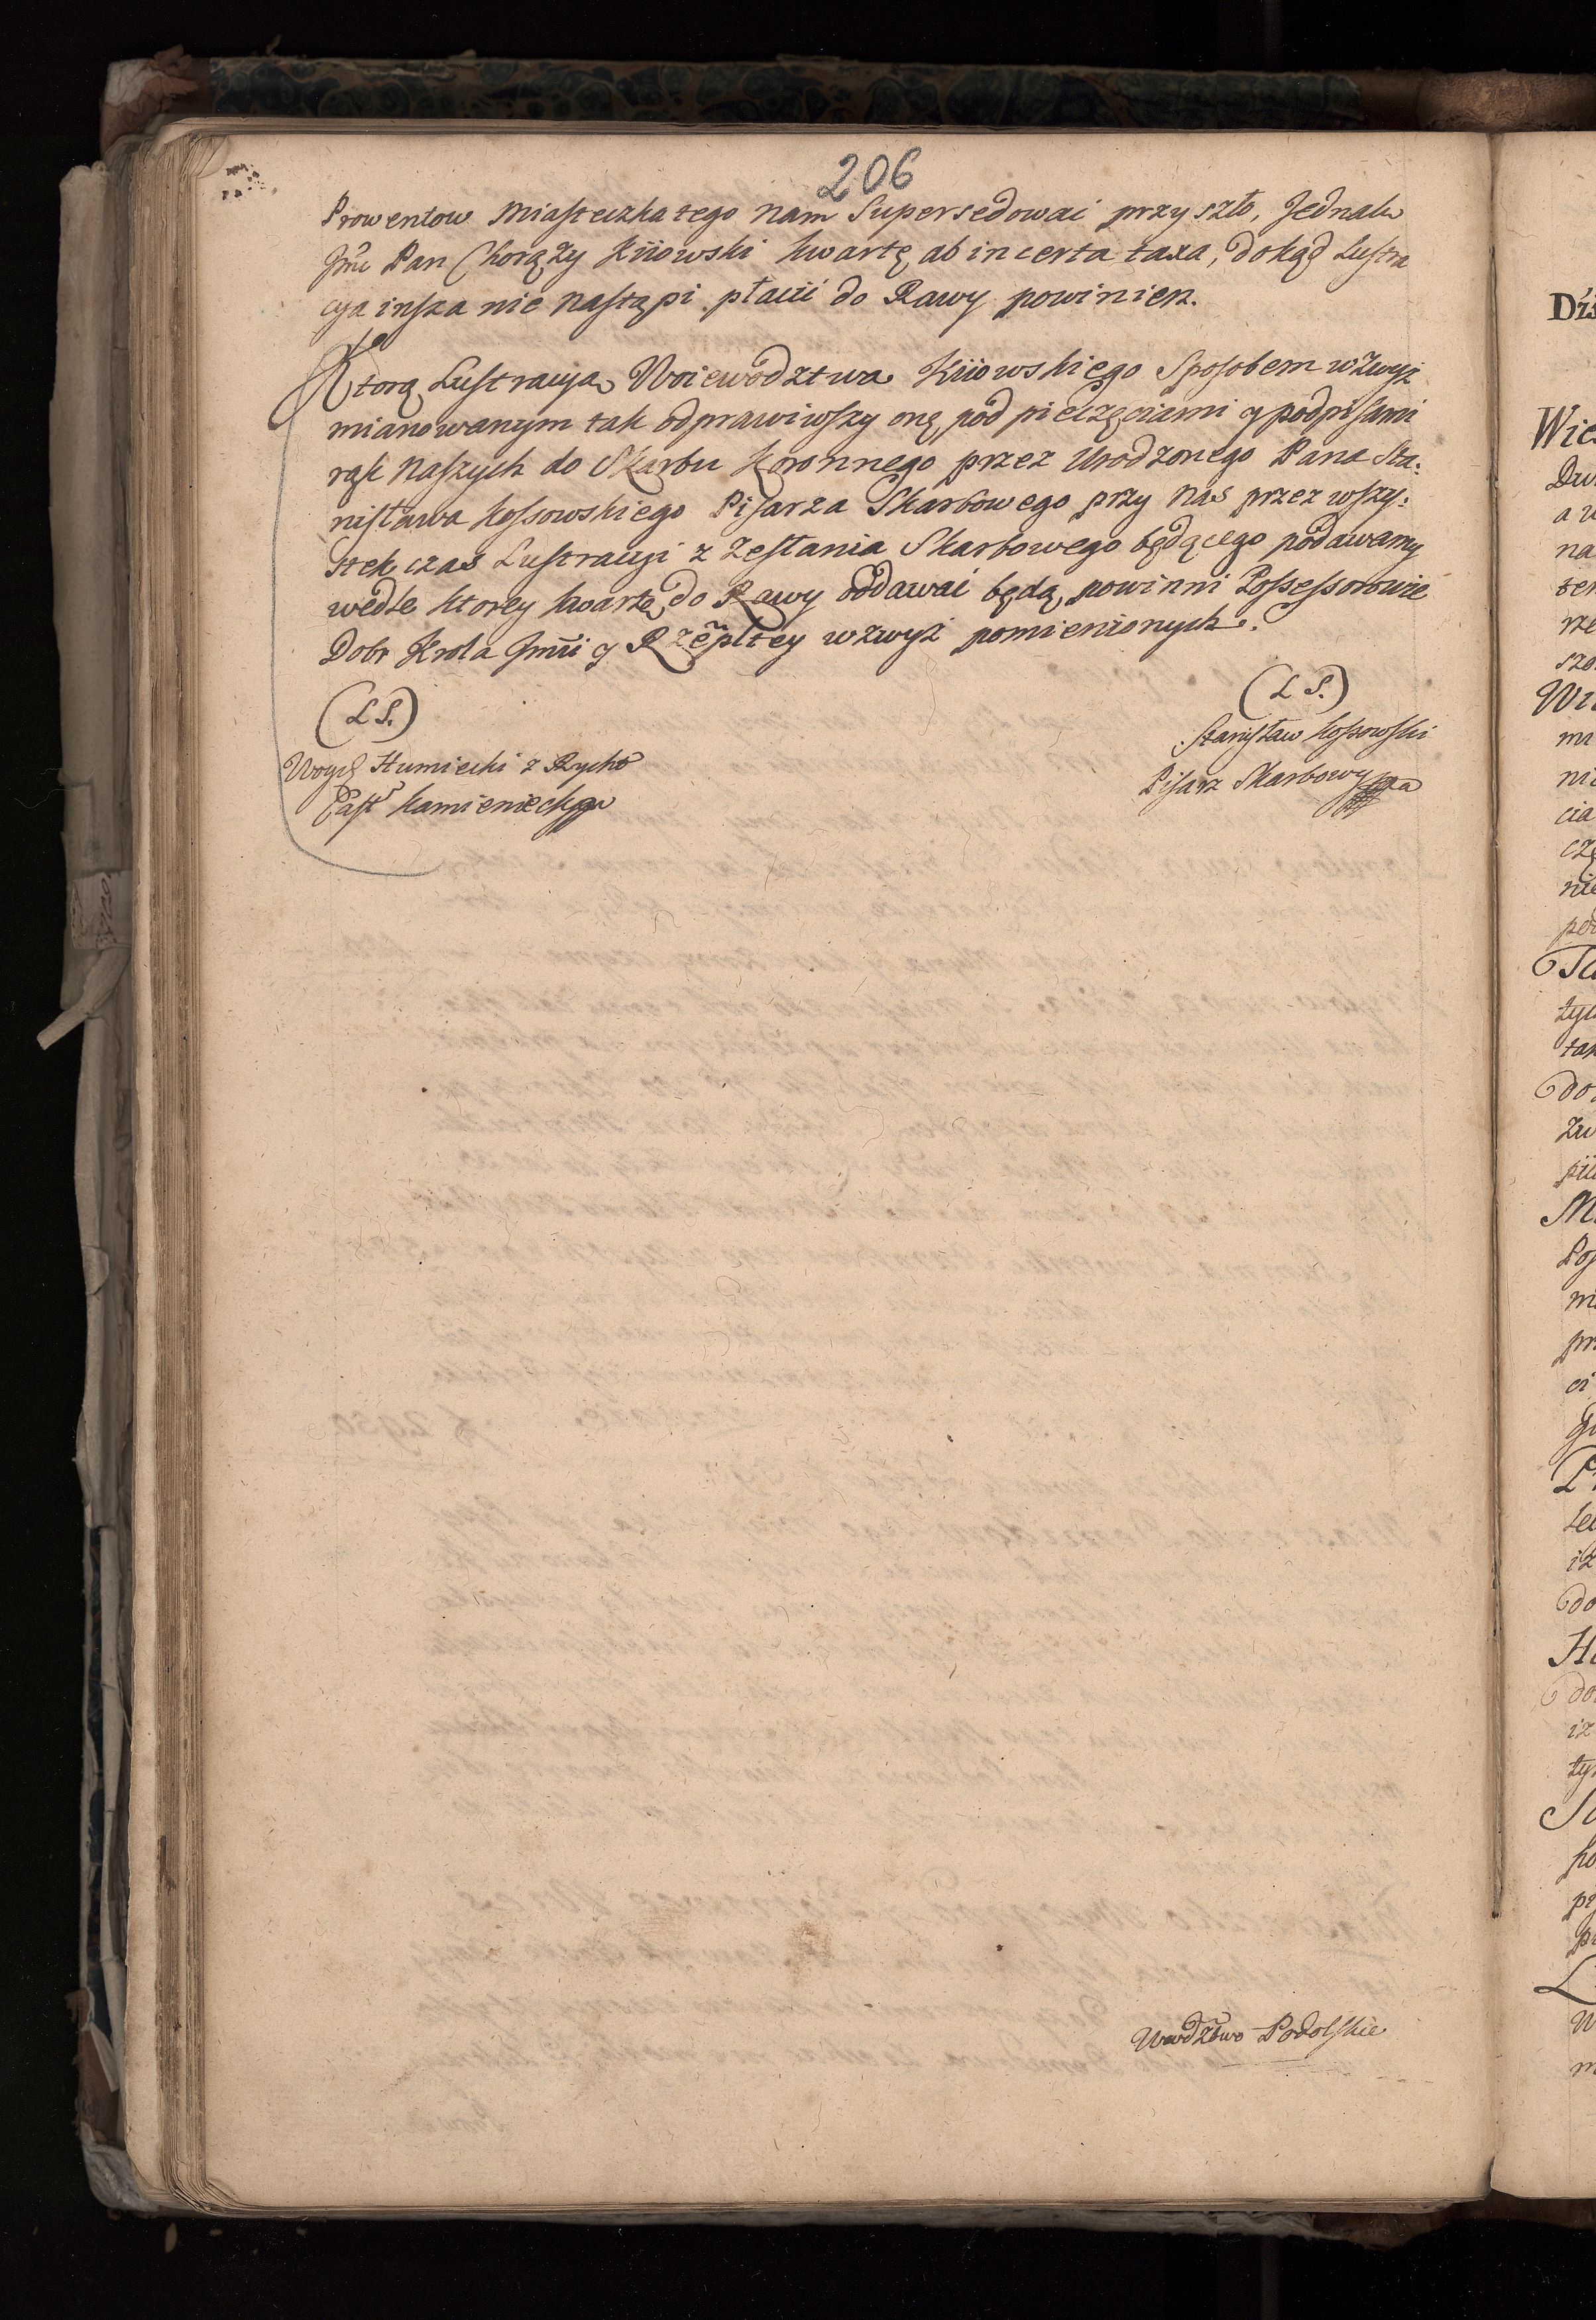 206
Prowentow Miasteczka tego nam Supersedowai przyszło, Jednak
Jmć Pan Chorąży Kiiowski kwartę ab incerta taxa, dokąd Lustra
cya insza nie nastąpi płacić do Rawy powinien.
Ktorą Lustracyą Woiewodztwa Kiiowskiego Sposobem wzwyż
mianowanym tak odprawiwszy onę pod pieczęciami y podpisami
rąk Naszych do Skarbu Koronnego przez Urodzonego Pana Sta:
nisława Kossowskiego Pisarza Skarbowego przy Nas przez wszy:
stek czas Lustracyi z Zesłania Skarbowego będącego podawamy
wedle ktorey kwartę do Rawy oddawai będą powinni Possessorowie
Dobr Krola Jmći y Rzepltey wzwyż pomienionych.
(L S.)
(L S.)
Woyc Humiecki z Rycht
Stanisław Kossowski
Cast Kamieniecki
Pisarz Skarbowy
Wwdztwo Podolskie
Wie
Du
a u
na
ten
rze
szo
mi
ni
cia
czę
nie
tak
do
Po
pr
do
iz
ty